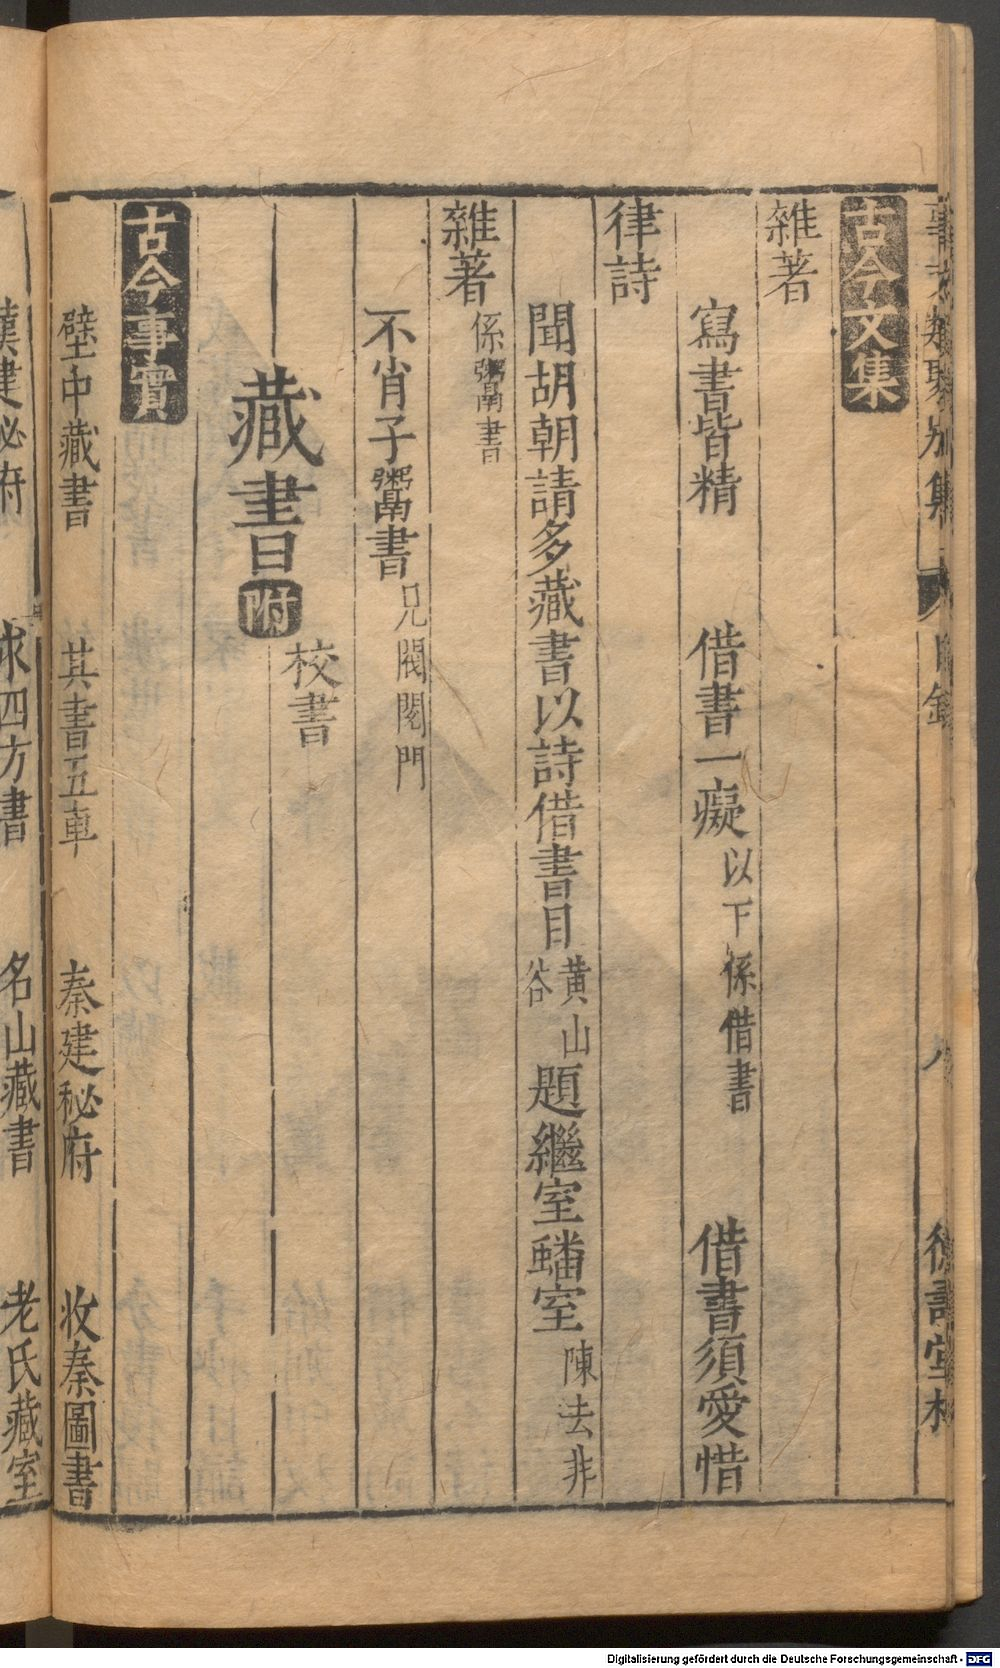 事文類聚別集 目錄 八 德壽堂梓
古今文集
雜著
寫書皆精 借書一癡 以下係借書 借書須愛惜
律詩
聞胡朝請多藏書以詩借書目 黄山谷 題繼室蟠室 陳法非
雜著 係鬻書
不肖子鬻書 兄閥閱門
藏書 附 校書
古今事實
壁中藏書 其書五車 秦建秘府 收秦圖書
漢建秘府 求四方書 名山藏書 老氏藏室
Digitalisierung gefördert durch die Deutsche Forschungsgemeinschaft - DFG